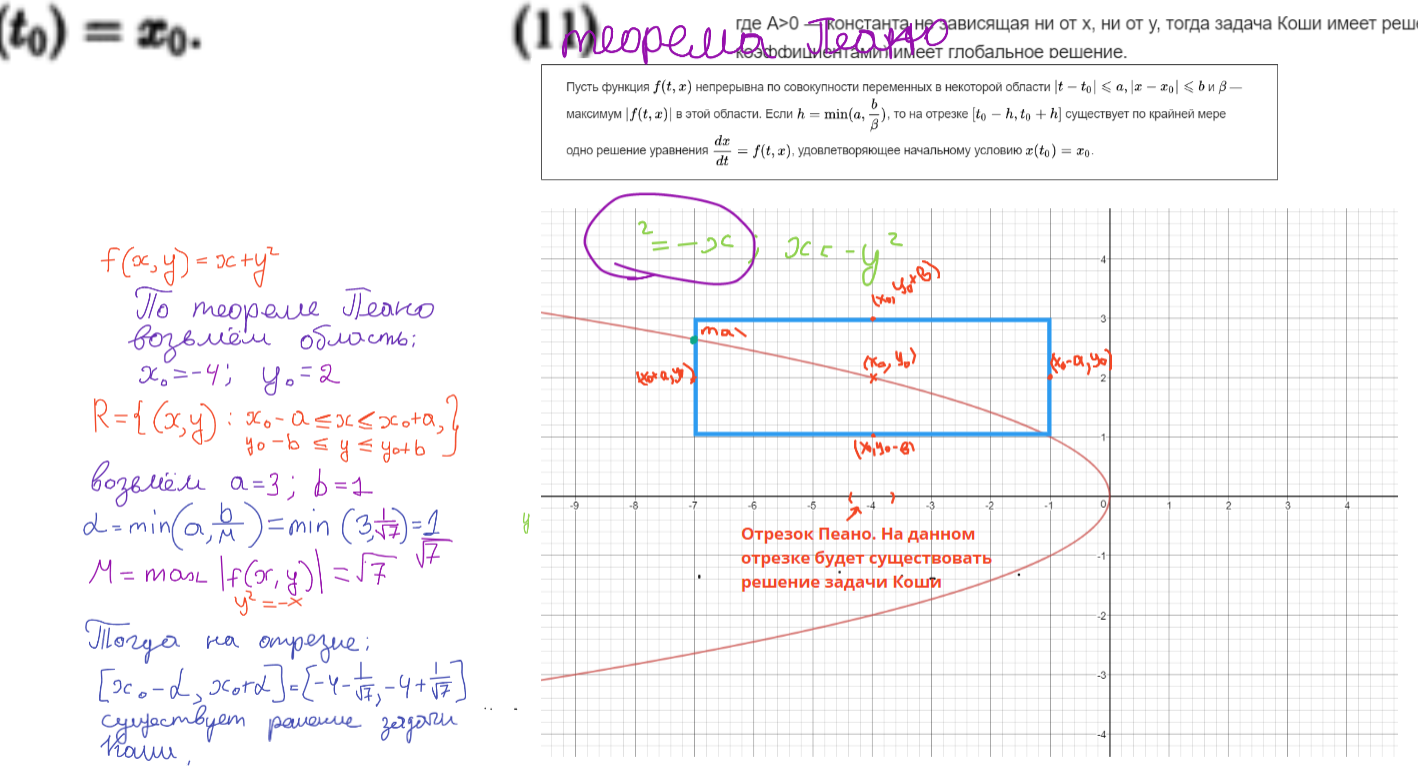 (t₀) = x₀.
(11)
теорема Пеано
где A>0 — константа не зависящая ни от x, ни от y, тогда задача Коши имеет реш
коэффициентами имеет глобальное решение.
Пусть функция f(t, x) непрерывна по совокупности переменных в некоторой области |t − t₀| ⩽ a, |x − x₀| ⩽ b и β —
максимум |f(t, x)| в этой области. Если h = min(a, b/β), то на отрезке [t₀ − h, t₀ + h] существует по крайней мере
одно решение уравнения dx/dt = f(t, x), удовлетворяющее начальному условию x(t₀) = x₀.
f(x,y) = x+y²
По теореме Пеано
возьмём область:
x₀=-4; y₀=2
R={(x,y) : x₀-a ≤ x ≤ x₀+a,
y₀-b ≤ y ≤ y₀+b}
возьмём a=3; b=1
α=min(a, b/M)=min(3, 1/√7)=1/√7
M = max |f(x,y)| = √7
y²=-x
Тогда на отрезке:
[x₀-α, x₀+α]=[-4-1/√7, -4+1/√7]
существует решение задачи
Коши.
² = -x ; x = -y²
(x₀, y₀+b)
max
(x₀, y₀)
(x₀+a, y₀)
(x₀-a, y₀)
(x₀, y₀-b)
y
4
3
2
1
-9 -8 -7 -6 -5 -4 -3 -2 -1 0 1 2 3 4
-1
-2
-3
-4
Отрезок Пеано. На данном
отрезке будет существовать
решение задачи Коши